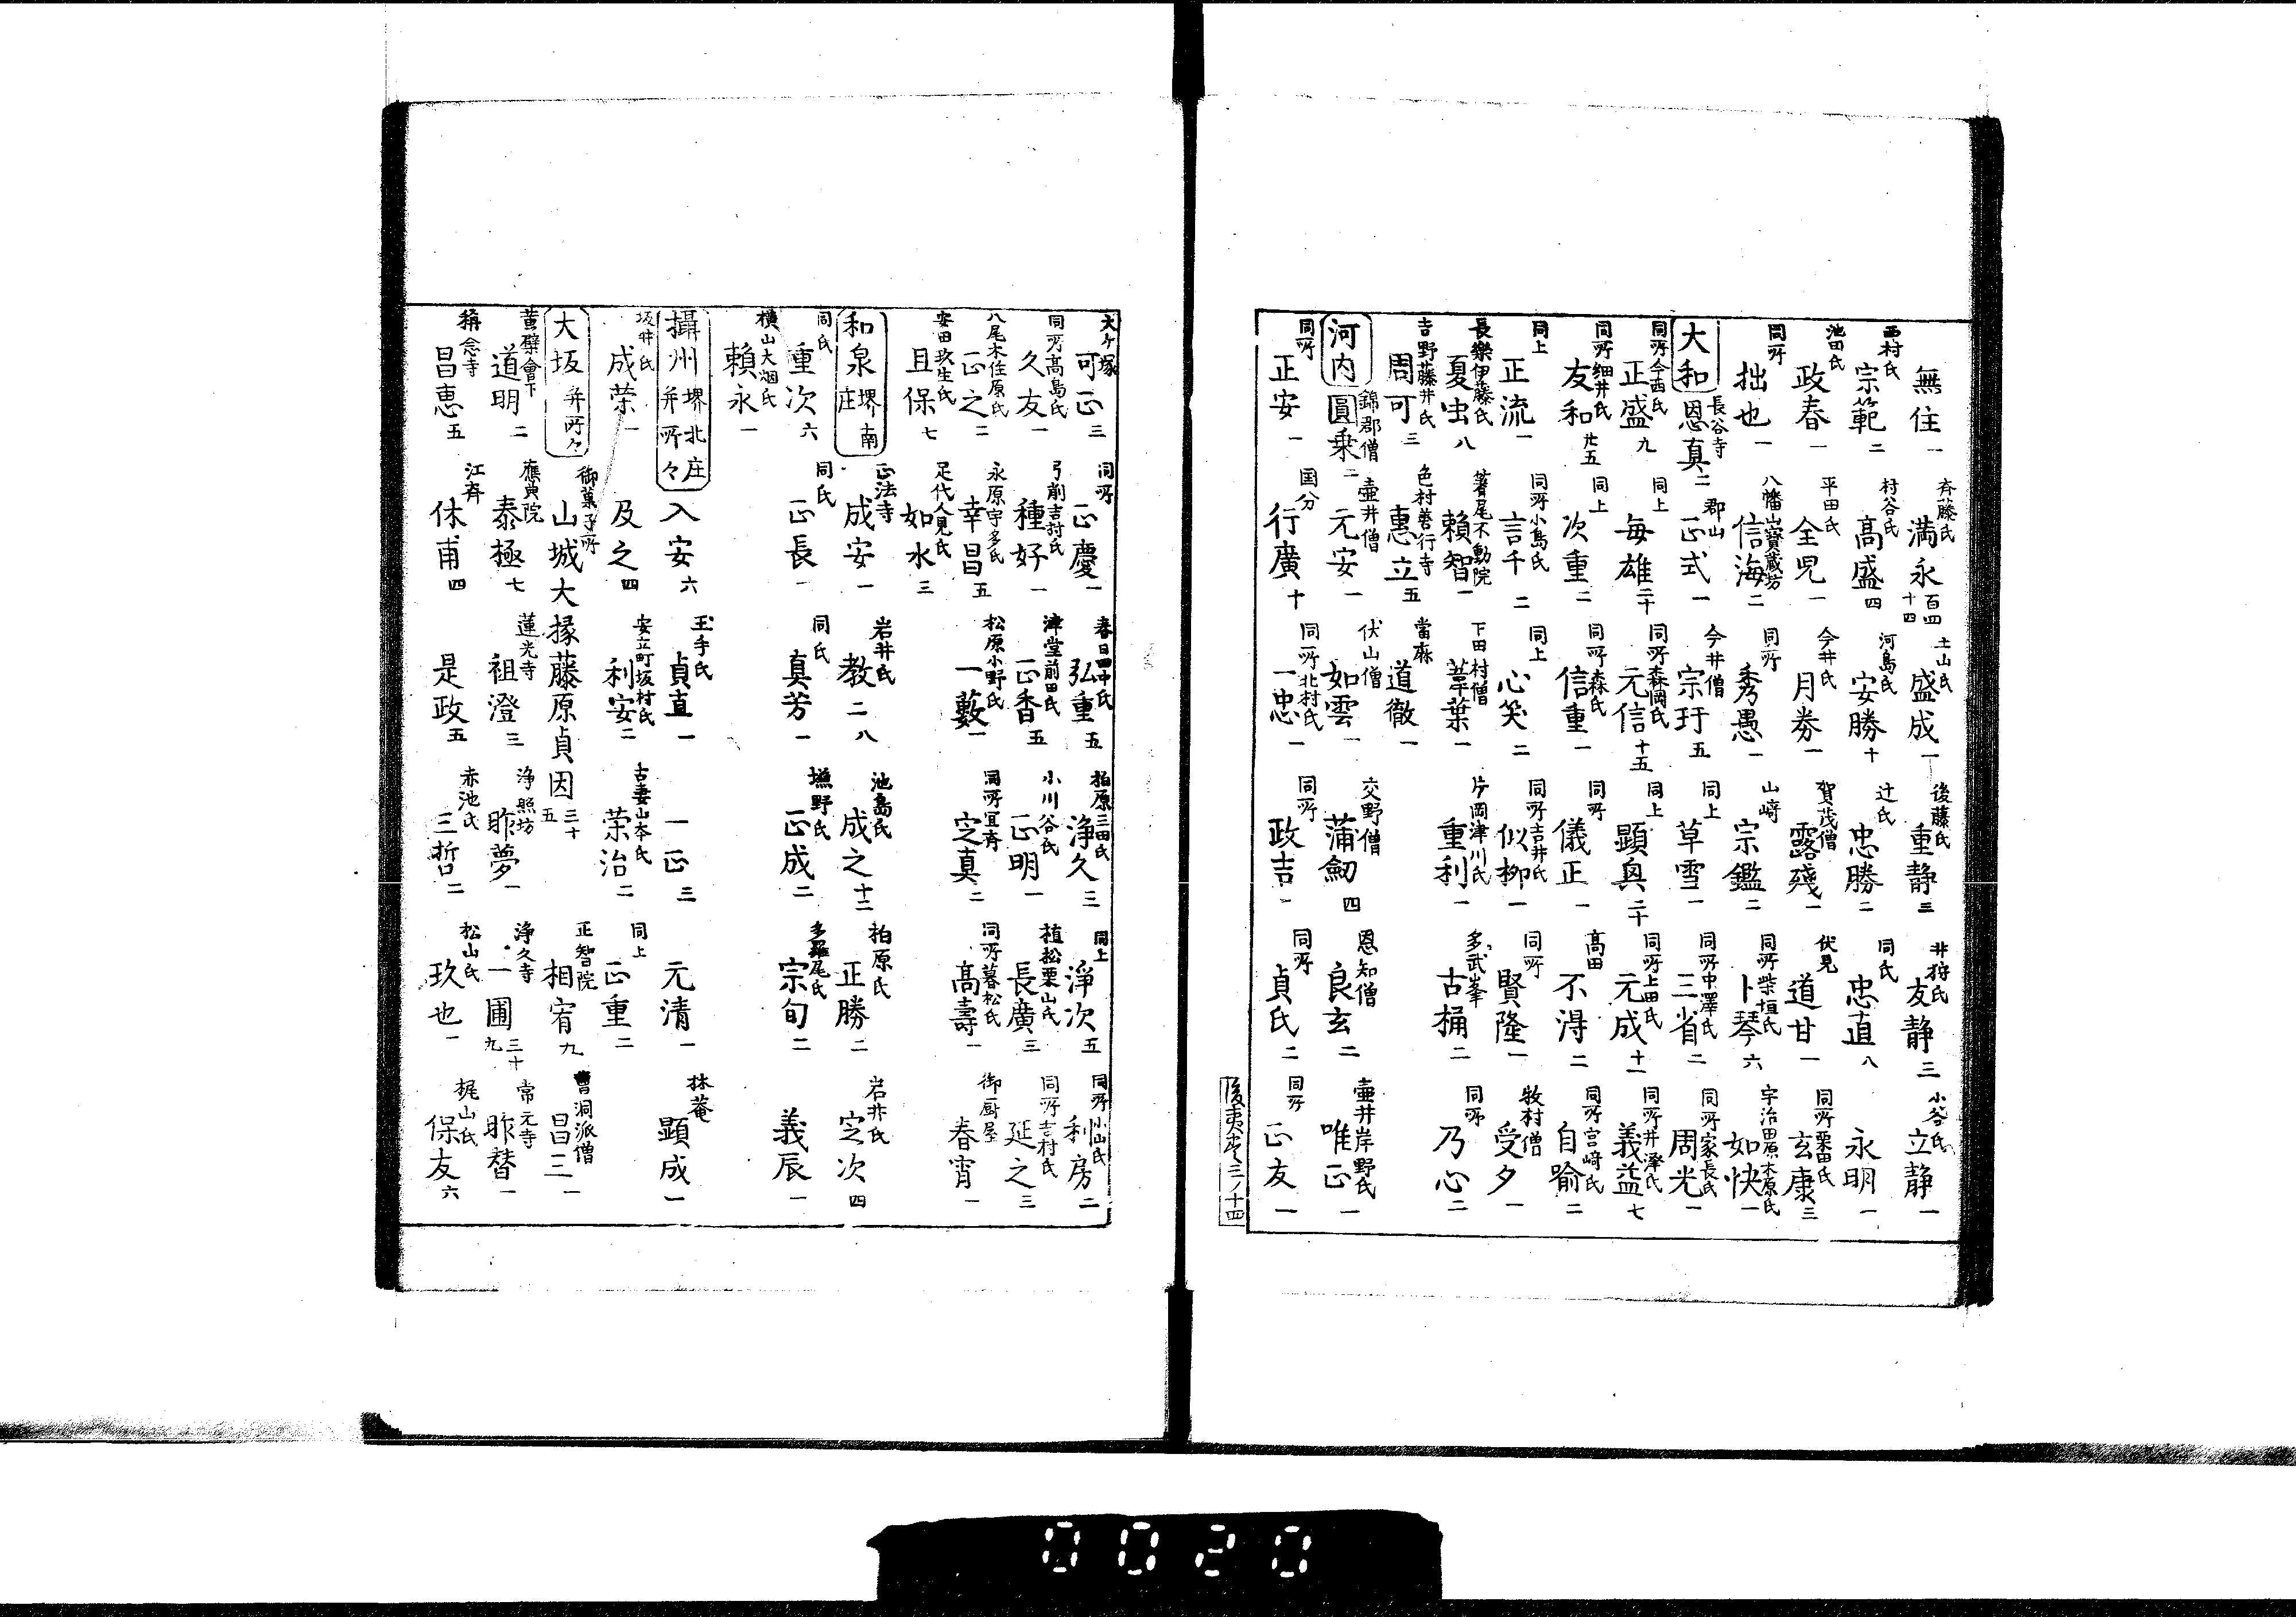 無住 一 斉藤氏 満永 百四十四 土山氏 盛成 一 後藤氏 重静 三 井狩氏 友静 三 小谷氏 立静 一
西村氏 宗範 二 村谷氏 高盛 四 河島氏 安勝 十 辻氏 忠勝 二 同氏 忠直 八 永明 一
池田氏 政春 一 平田氏 全児 一 今井氏 月券 一 賀茂僧 露残 一 伏見 道甘 一 同所粟田氏 玄康 三
同所 拙也 一 八幡山寶蔵坊 信海 二 同所 秀愚 一 山﨑 宗鑑 二 同所柴垣氏 卜琴 六 宇治田原木原氏 如快 一
大和 長谷寺 恩真 二 郡山 正式 一 今井僧 宗玗 五 同上 草雪 一 同所中澤氏 三省 二 同所家長氏 周光 一
同所今西氏 正盛 九 同上 毎雄 二十 同所森岡氏 元信 十五 同上 顕興 二十 同所上田氏 元成 十一 同所井澤氏 義益 七
同所细井氏 友和 廿五 同上 次重 二 同所森氏 信重 一 同所 儀正 一 髙田 不淂 二 同所宮﨑氏 自喩 二
同上 正流 一 同所小島氏 言千 二 同上 心笑 二 同所吉井氏 似柳 一 同所 賢隆 一 牧村僧 受夕 一
長樂伊藤氏 夏虫 八 箸尾不動院 頼智 一 下田村僧 葦葉 一 片岡津川氏 重利 一 多武峯 古桶 二 同所 乃心 二
吉野藤井氏 周可 三 色村善行寺 惠立 五 當麻 道徹 一
河内 錦郡僧 圓乗 二 壷井僧 元安 一 伏山僧 如雲 一 交野僧 蒲劒 四 恩知僧 良玄 二 壷井岸野氏 唯正 一
同所 正安 一 国分 行廣 十 同所北村氏 一忠 一 同所 政吉 一 同所 貞氏 二 同所 正友 一
後夷巻三ノ十四
大ヶ塚 可正 三 同所 正慶 一 春日田中氏 弘重 五 柏原三田氏 浄久 三 同上 淨次 五 同所小山氏 利房 二
同所髙島氏 久友 一 弓削吉討氏 種好 一 津堂前田氏 正香 五 小川谷氏 正明 一 植松栗山氏 長廣 三 同所吉村氏 延之 三
八尾木住原氏 正之 二 永原宇多氏 幸昌 五 松原小野氏 一藪 一 同所宜斉 定真 二 同所暮松氏 髙壽 一 御厨屋 春宵 一
安田玖生氏 且保 七 足代人見氏 如水 三
和泉 堺南庄 正法寺 成安 一 岩井氏 教二 八 池島氏 成之 十二 柏原氏 正勝 二 岩井氏 定次 四
同氏 重次 六 同氏 正長 一 同氏 真芳 一 塩野氏 正成 二 多羅尾氏 宗旬 二 義辰 一
横山大畑氏 頼永 一
攝州 堺北庄并所々 入安 六 玉手氏 貞直 一 一正 三 元清 一 林菴 顕成 一
坂井氏 成荣 一 及之 四 安立町坂村氏 利安 二 古妻山本氏 荣治 二 同上 正重 二
大坂 并所々 御菓子所 山城大掾藤原貞因 三十五 正智院 相宥 九 曹洞派僧 昌三 一
黄檗會下 道明 二 應典院 泰極 七 蓮光寺 祖澄 三 浄照坊 昨夢 一 浄久寺 一圃 三十九 常元寺 昨替 一
稱念寺 昌惠 五 江斉 休甫 四 是政 五 赤池氏 三哲 二 松山氏 玖也 一 梶山氏 保友 六
0020